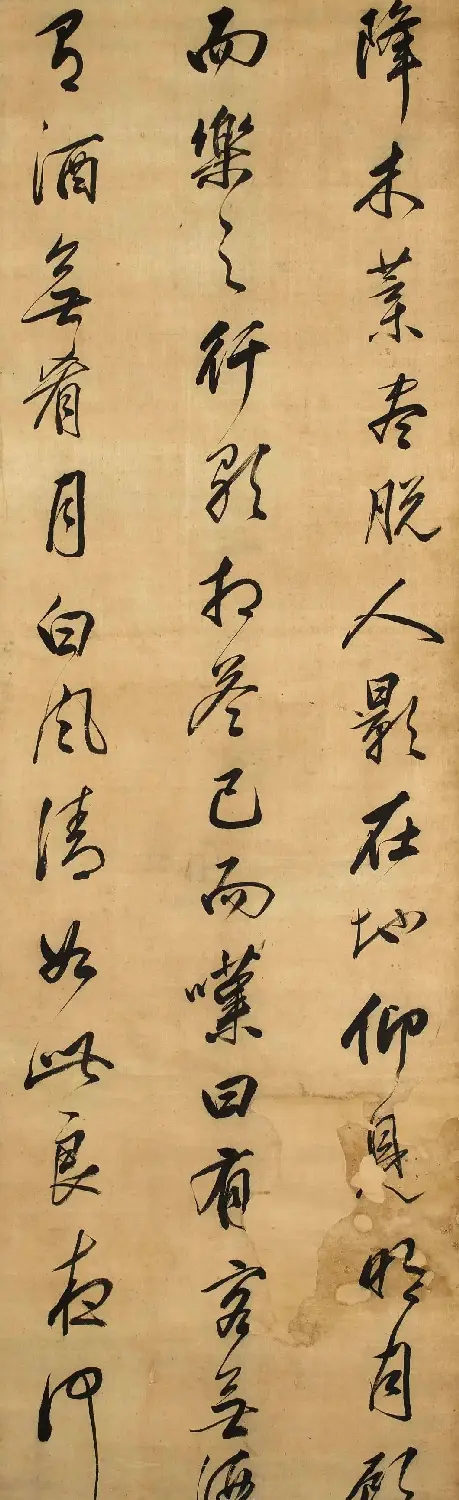 降木葉盡脫人影在地仰見明月顧
而樂之行歌相答已而嘆曰有客無酒
有酒無肴月白風清如此良夜何